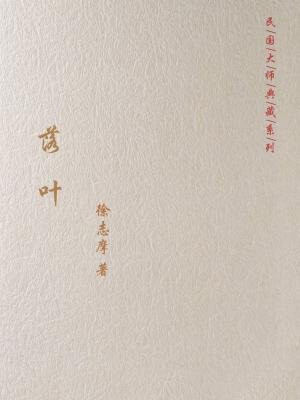 民国大师典藏系列
落叶
徐志摩 著